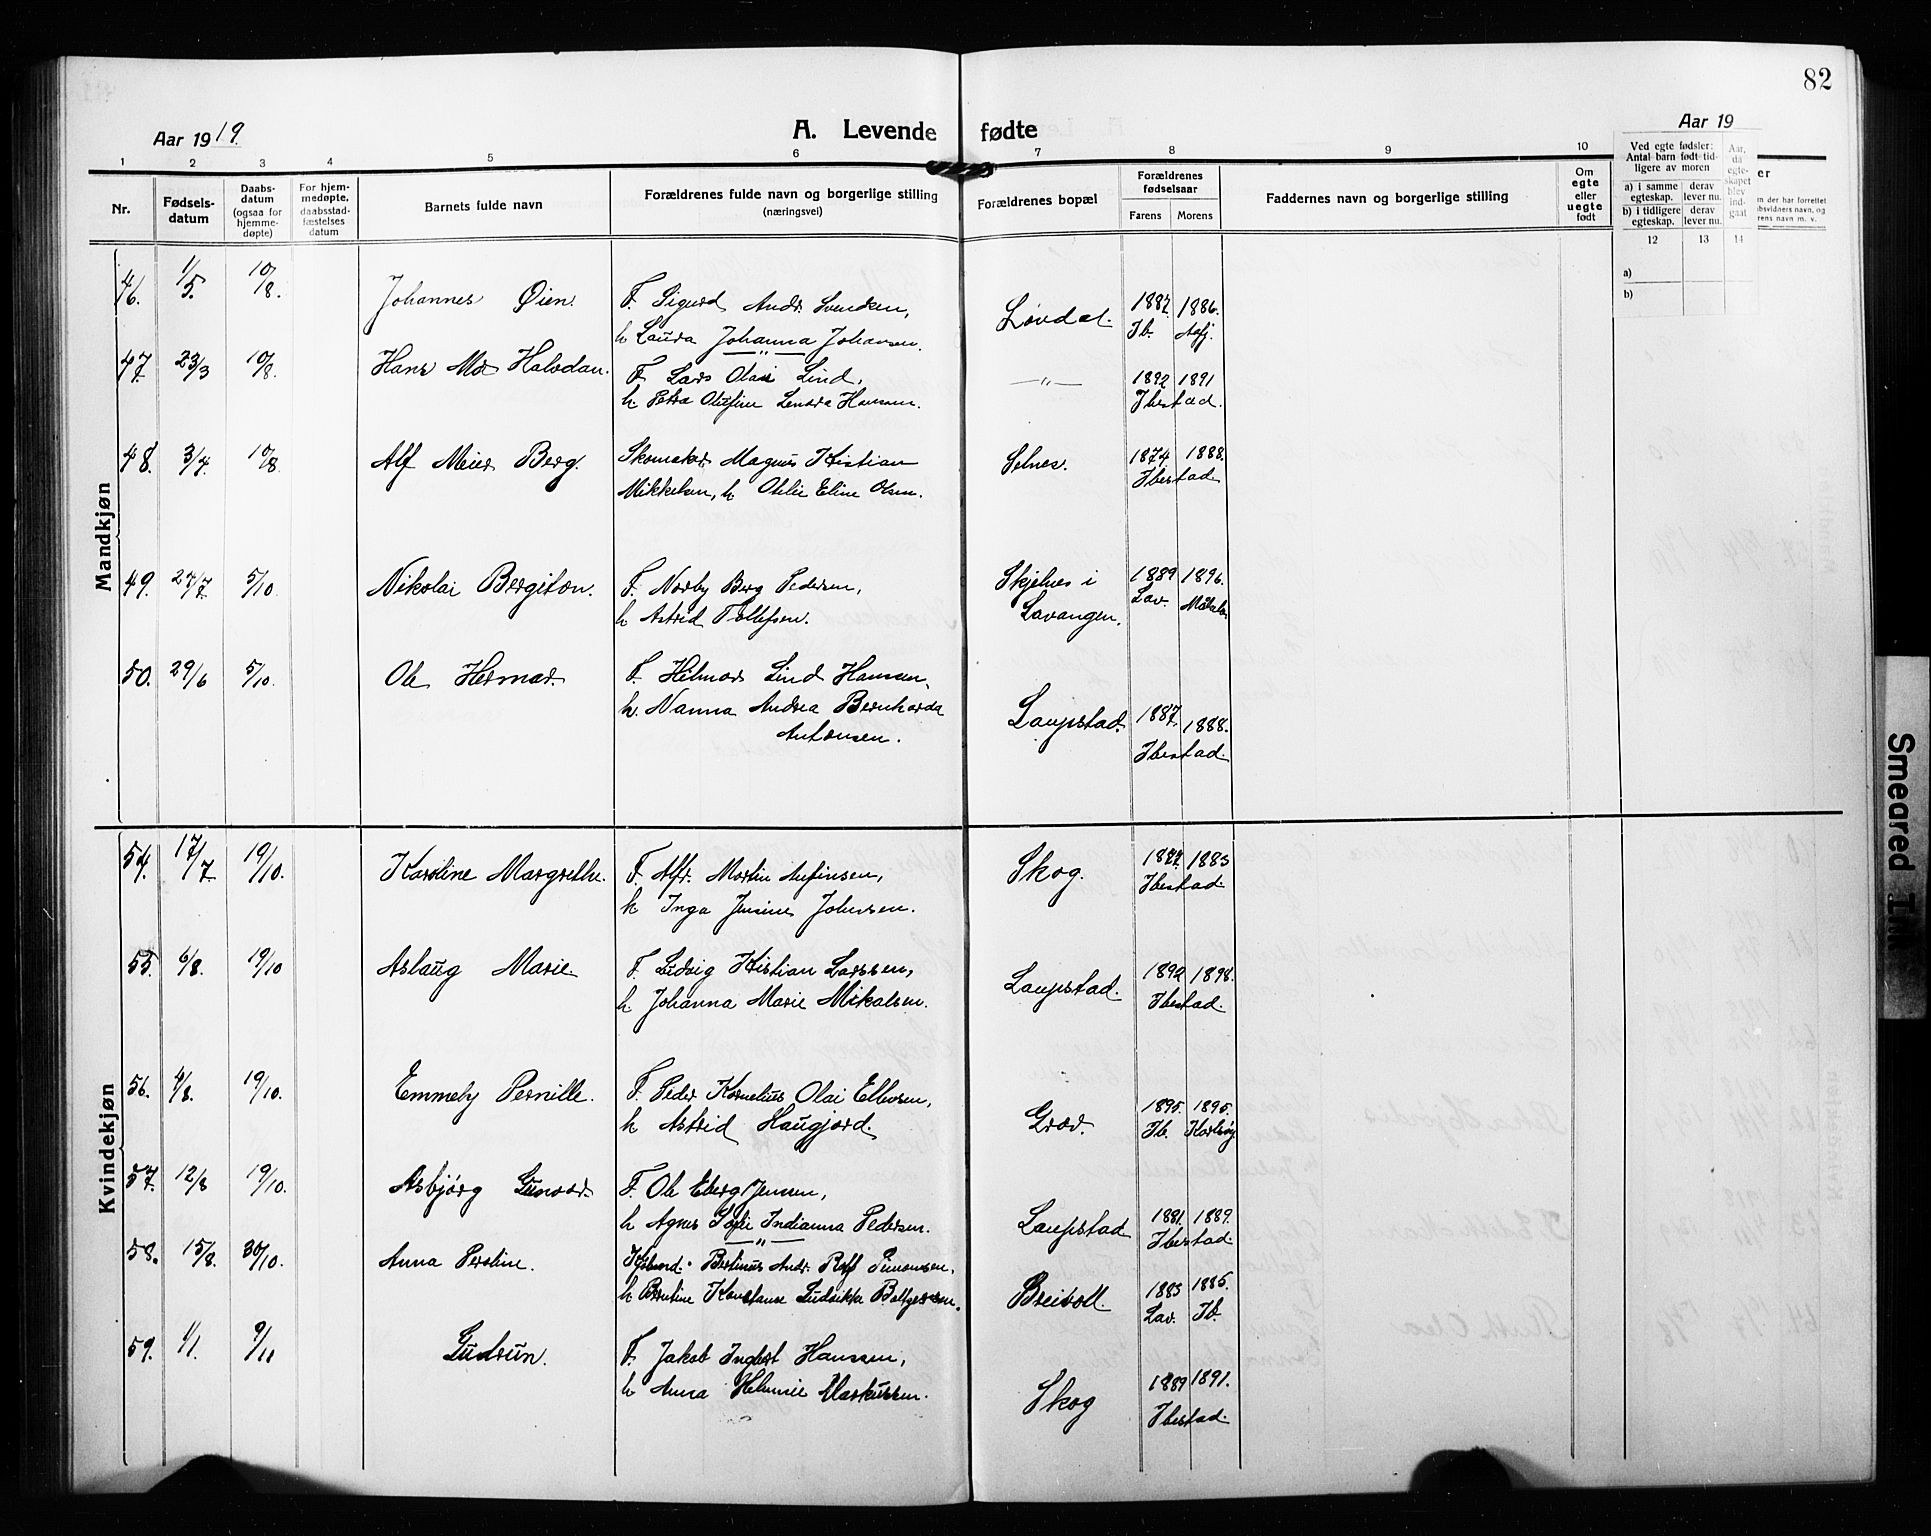 82
Aar 1919.
A. Levende fødte
Aar 19
1 2 3 4 5 6 7 8 9 10
Nr.
Fødsels-
datum
Daabs-
datum
(ogsaa for
hjemme-
døpte)
For hjem-
medøpte,
daabsstad-
fæstelses
datum
Barnets fulde navn
Forældrenes fulde navn og borgerlige stilling
(næringsvei)
Forældrenes bopæl
Forældrenes
fødselsaar
Farens Morens
Faddernes navn og borgerlige stilling
Om
egte
eller
uegte
født
Ved egte fødsler:
Antal barn født tid-
ligere av moren
a) i samme
egteskap.
derav
lever nu.
b) i tidligere
egteskap.
derav
lever nu.
Aar,
da
egte-
skapet
blev
ind-
gaat
12 13 14
a)
b)
er
m der har forrettet
bsvidners navn, og
rens navn m. v.
Mandkjøn
46. 1/5. 10/8. Johannes Øien. F. Sigurd Andr. Svendsen, Løvdal. 1887. 1886.
h Laura Johanna Johansen. Ib. Aafj.
47. 23/3 10/8. Hans Md Halvdan. F. Lars Olai Lind, —"— 1892 1891
h. Petra Olufine Lenora Hansen. Ibestad.
48. 3/4. 10/8. Alf Meier Berg. Skomaker Magnus Kristian Selnes. 1874 1888.
Mikkelsen, h Otelie Eline Olsen. Ibestad.
49. 27/7 5/10. Nikolai Bergiton. F. Norby Berg Pedersen, Skjelnes i 1889 1896.
h Astrid Tollefsen. Lavangen. Lav.
50. 29/6 5/10. Ole Hermar. F. Hilmar Lind Hansen,
h. Nanna Andrea Bernharda Laupstad. 1887. 1888.
Antonsen. Ibestad.
Kvindekjøn
54. 17/7 19/10. Karoline Margrethe. F. Alfr. Martin Anfinsen, Skog. 1887. 1883
h Inga Jensine Johnsen. Ibestad.
55. 6/8. 19/10 Aslaug Marie. F. Ludvig Kristian Larssen, Laupstad. 1892 1898.
h Johanna Marie Mikalsen. Ibestad.
56. 4/8. 19/10. Emmely Pernille. F. Peder Kornelius Olai Ellevsen, Grov. 1895. 1895.
h Astrid Haugjord. Ib. Karlsøy
57. 12/8 19/10. Asbjørg Gunvor. F. Ole Eberg Jensen,
h Agnes Sofie Indianna Pedersen. Laupstad 1881. 1889.
Ibestad.
58. 15/8. 30/10. Anna Peroline. Bertinus Andr. Rolf Simonsen,
h Berntine Konstanse Ludvikke Boltgersen. Breivoll. 1883 1885.
Lav. Ib.
59. 1/1. 9/11 Gudrun. F. Jakob Ingbert Hanssen,
h Anna Helmine Markussen. Skog 1889 1891.
Ibestad.
Smeared Ink